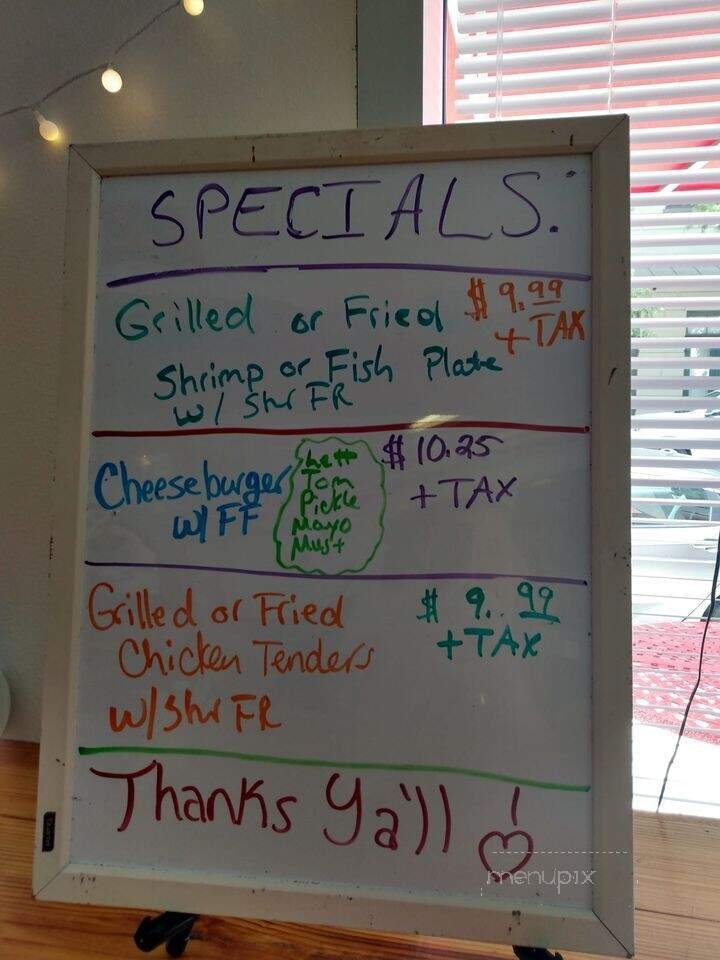 SPECIALS.
Grilled or Fried $ 9.99
+ TAX
Shrimp or Fish Plate
w/ Shr FR
Cheeseburger
w/ FF
Lett
Tom
Pickle
Mayo
Must
$ 10.25
+ TAX
Grilled or Fried
Chicken Tenders
w/ Shr FR
$ 9.99
+ TAX
Thanks Ya'll!
menupix